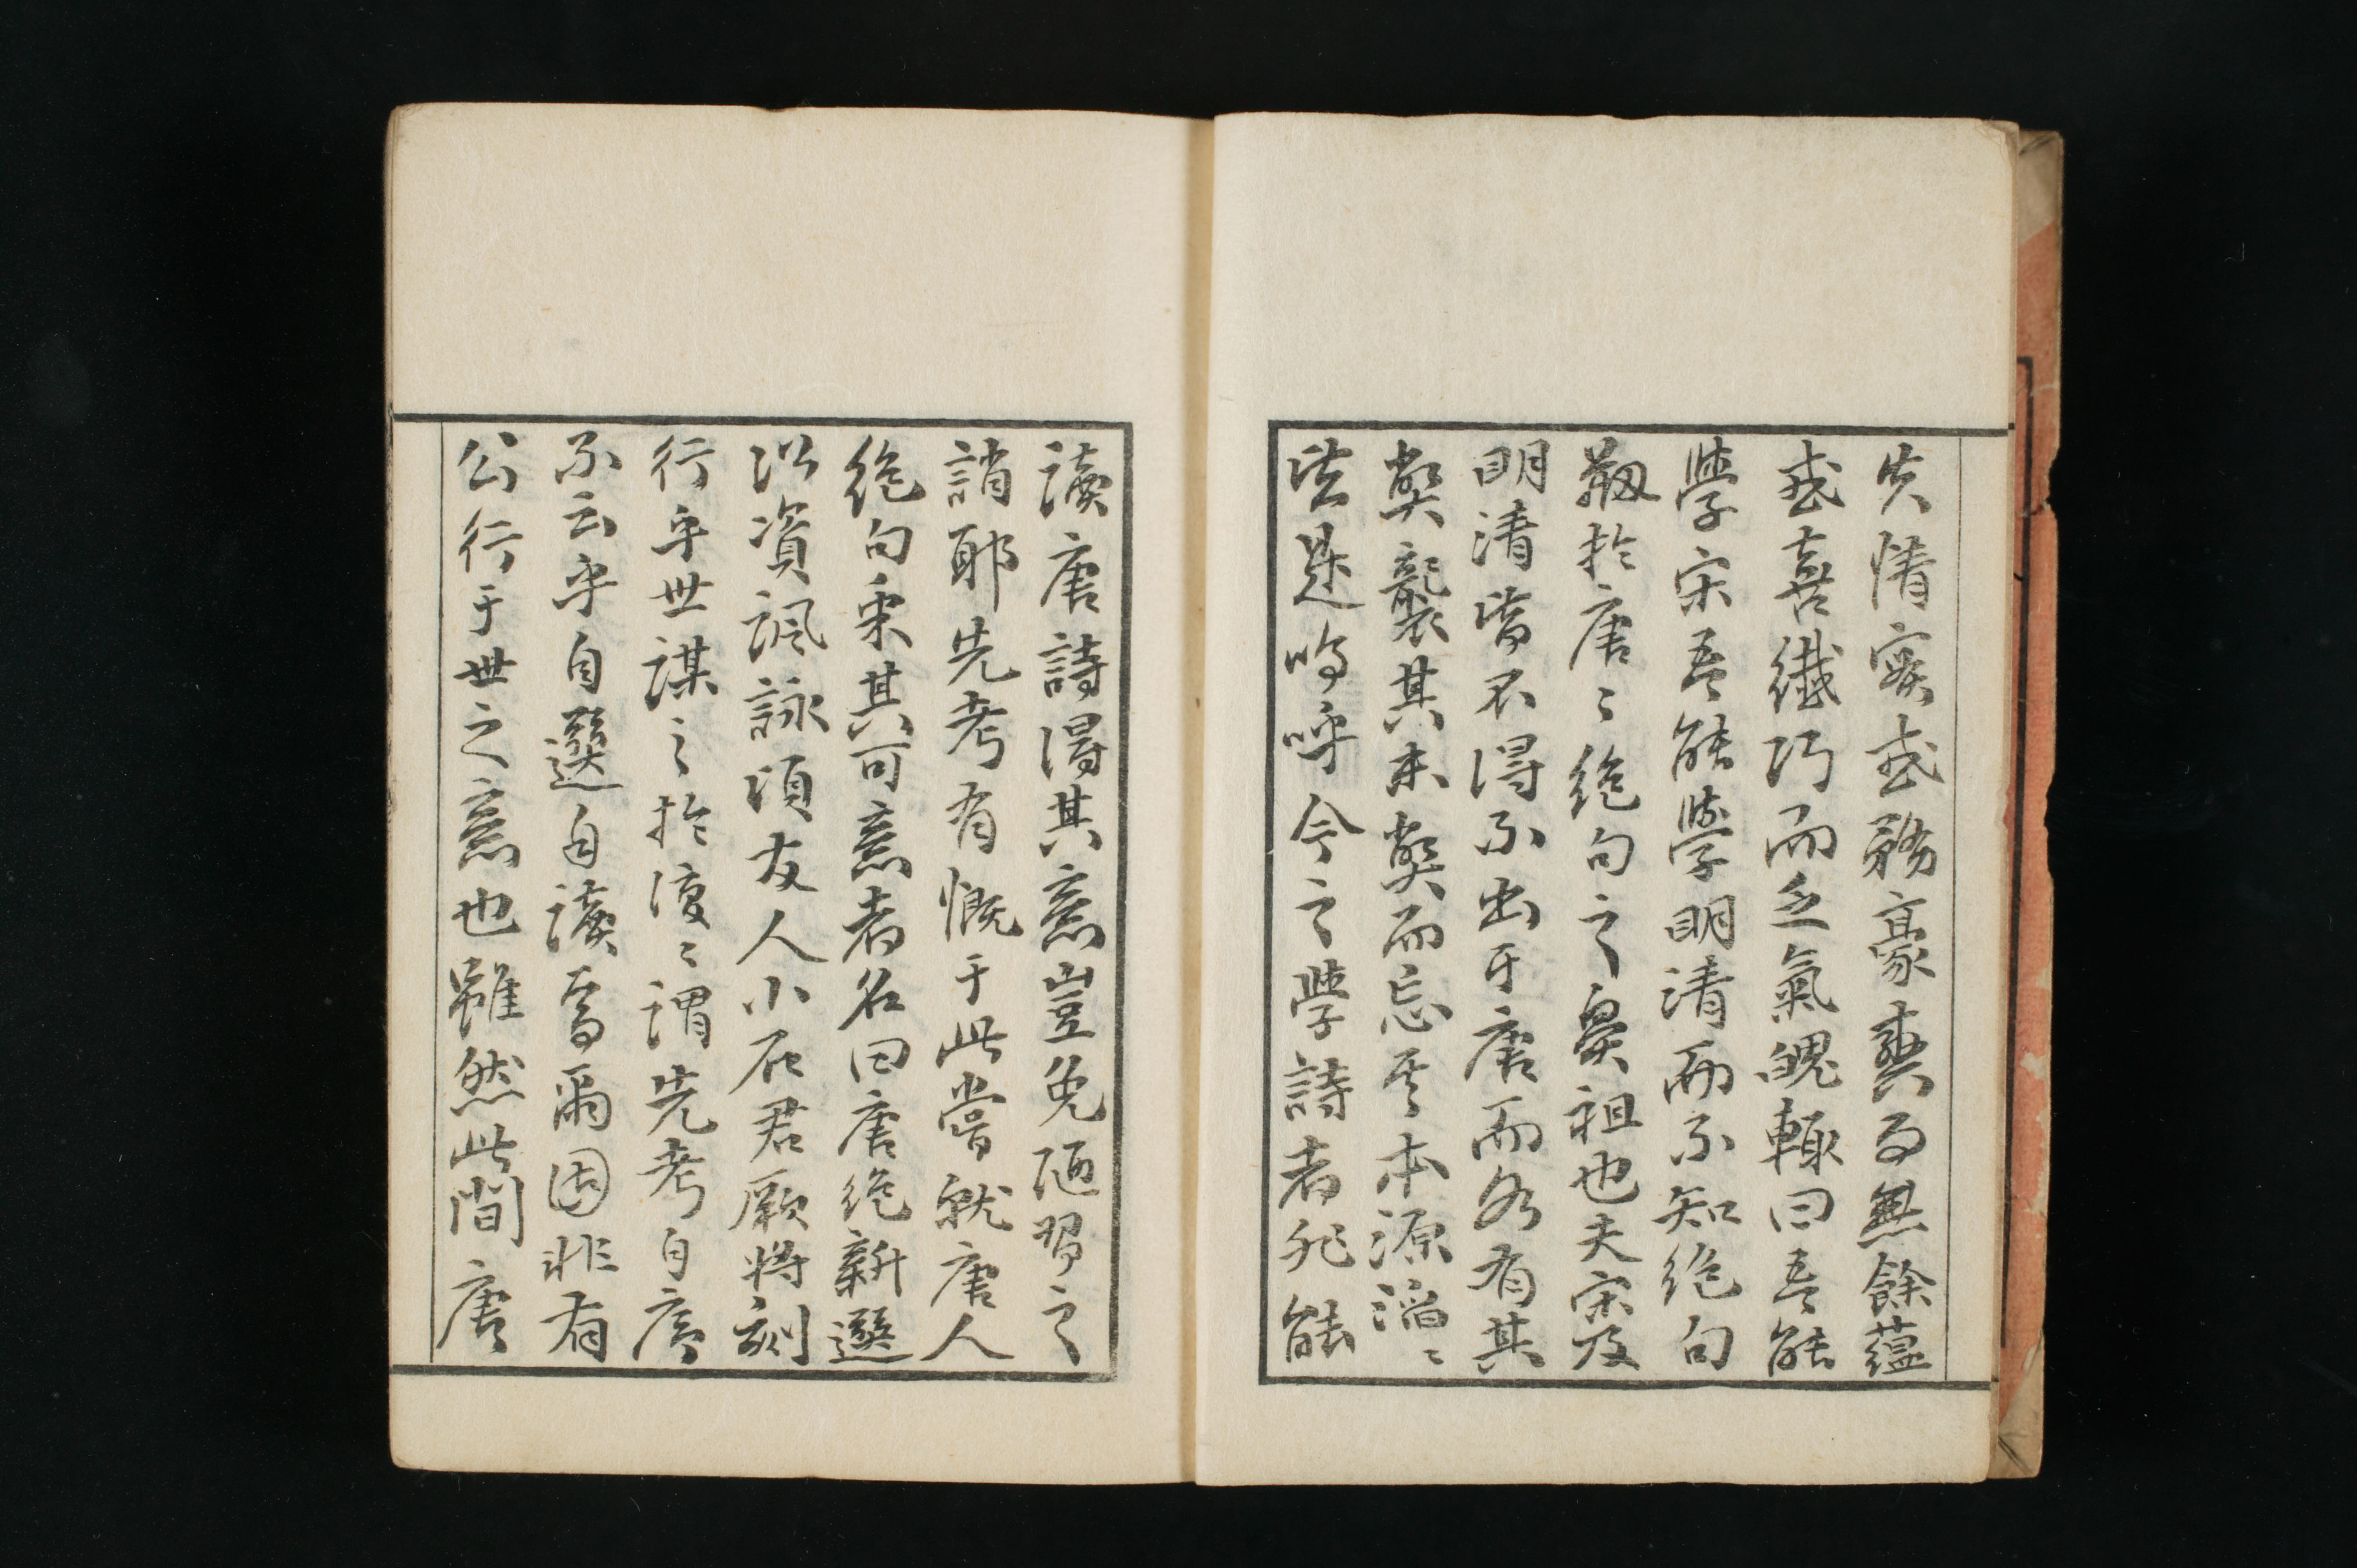 失情実或務豪爽而無餘蘊
或喜纎巧而乏氣魄輙曰吾能
學宋吾能學明清而不知絶句
刱於唐〻絶句之鼻祖也夫宋及
明清皆不得不出于唐而各有其
弊襲其末弊而忘其本源滔〻
皆是嗚呼今之學詩者非能
讀唐詩得其意豈免陋習之
誚耶先考有慨于此嘗就唐人
絶句采其可意者名曰唐絶新選
以資諷詠頃友人小石君厥将刻
行乎世謀之於復〻謂先考自序
不云乎自選自讀焉爾固非有
公行于世之意也雖然此間唐